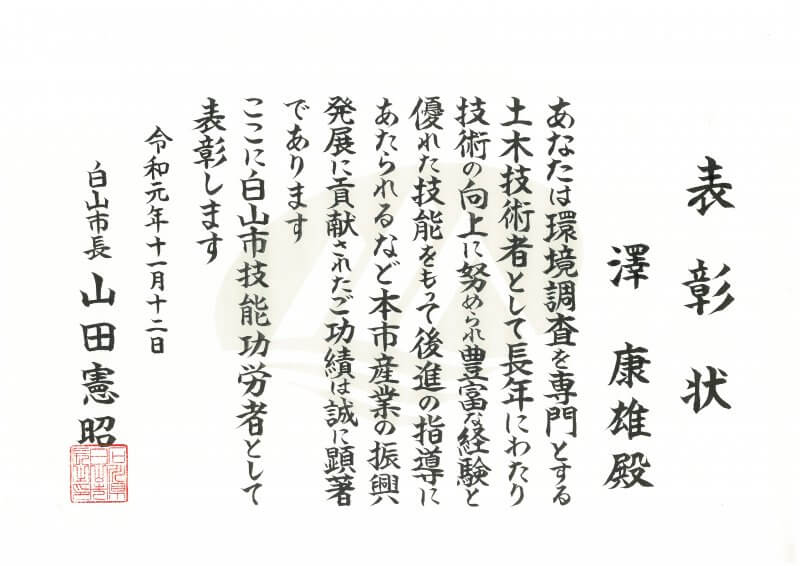 表彰状
澤 康雄殿
あなたは環境調査を専門とする
土木技術者として長年にわたり
技術の向上に努められ豊富な経験と
優れた技能をもって後進の指導に
あたられるなど本市産業の振興
発展に貢献されたご功績は誠に顕著
であります
ここに白山市技能功労者として
表彰します
令和元年十一月十二日
白山市長 山田憲昭